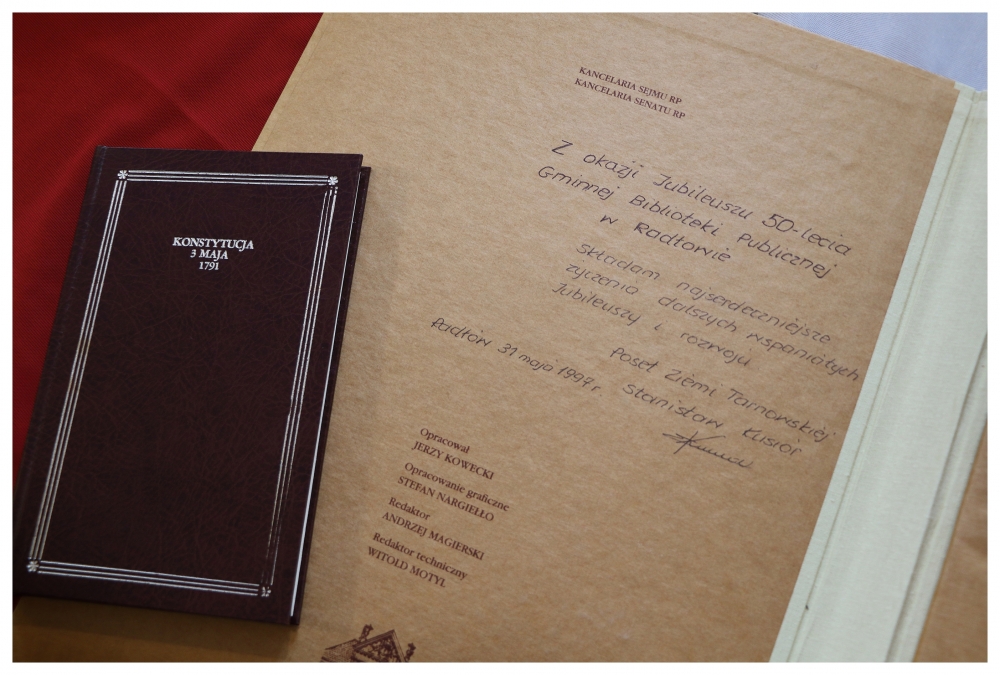 KONSTYTUCJA
3 MAJA
1791
KANCELARIA SEJMU RP
KANCELARIA SENATU RP
Z okazji Jubileuszu 50-lecia
Gminnej Biblioteki Publicznej
w Radłowie
Składam najserdeczniejsze
życzenia dalszych wspaniałych
Jubileuszy i rozwoju
Poseł Ziemi Tarnowskiej
Stanisław Kusior
Radłów 31 maja 1997 r.
Opracował
JERZY KOWECKI
Opracowanie graficzne
STEFAN NARGIEŁŁO
Redaktor
ANDRZEJ MAGIERSKI
Redaktor techniczny
WITOLD MOTYL